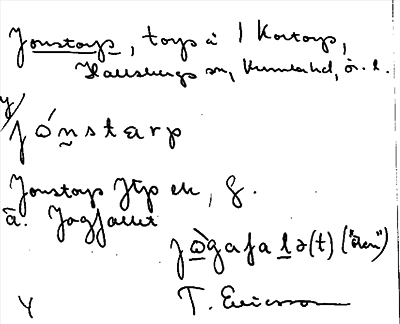 Jonstorp, torp å 1 Kortorp,
Hallsbergs sn, Kumla hd, ör. l.
y/
jónstarp
Jonstorp Jfp ek, g.
ä. Jogfallet
jògafalə(t) ("ören")
Y T. Ericsson